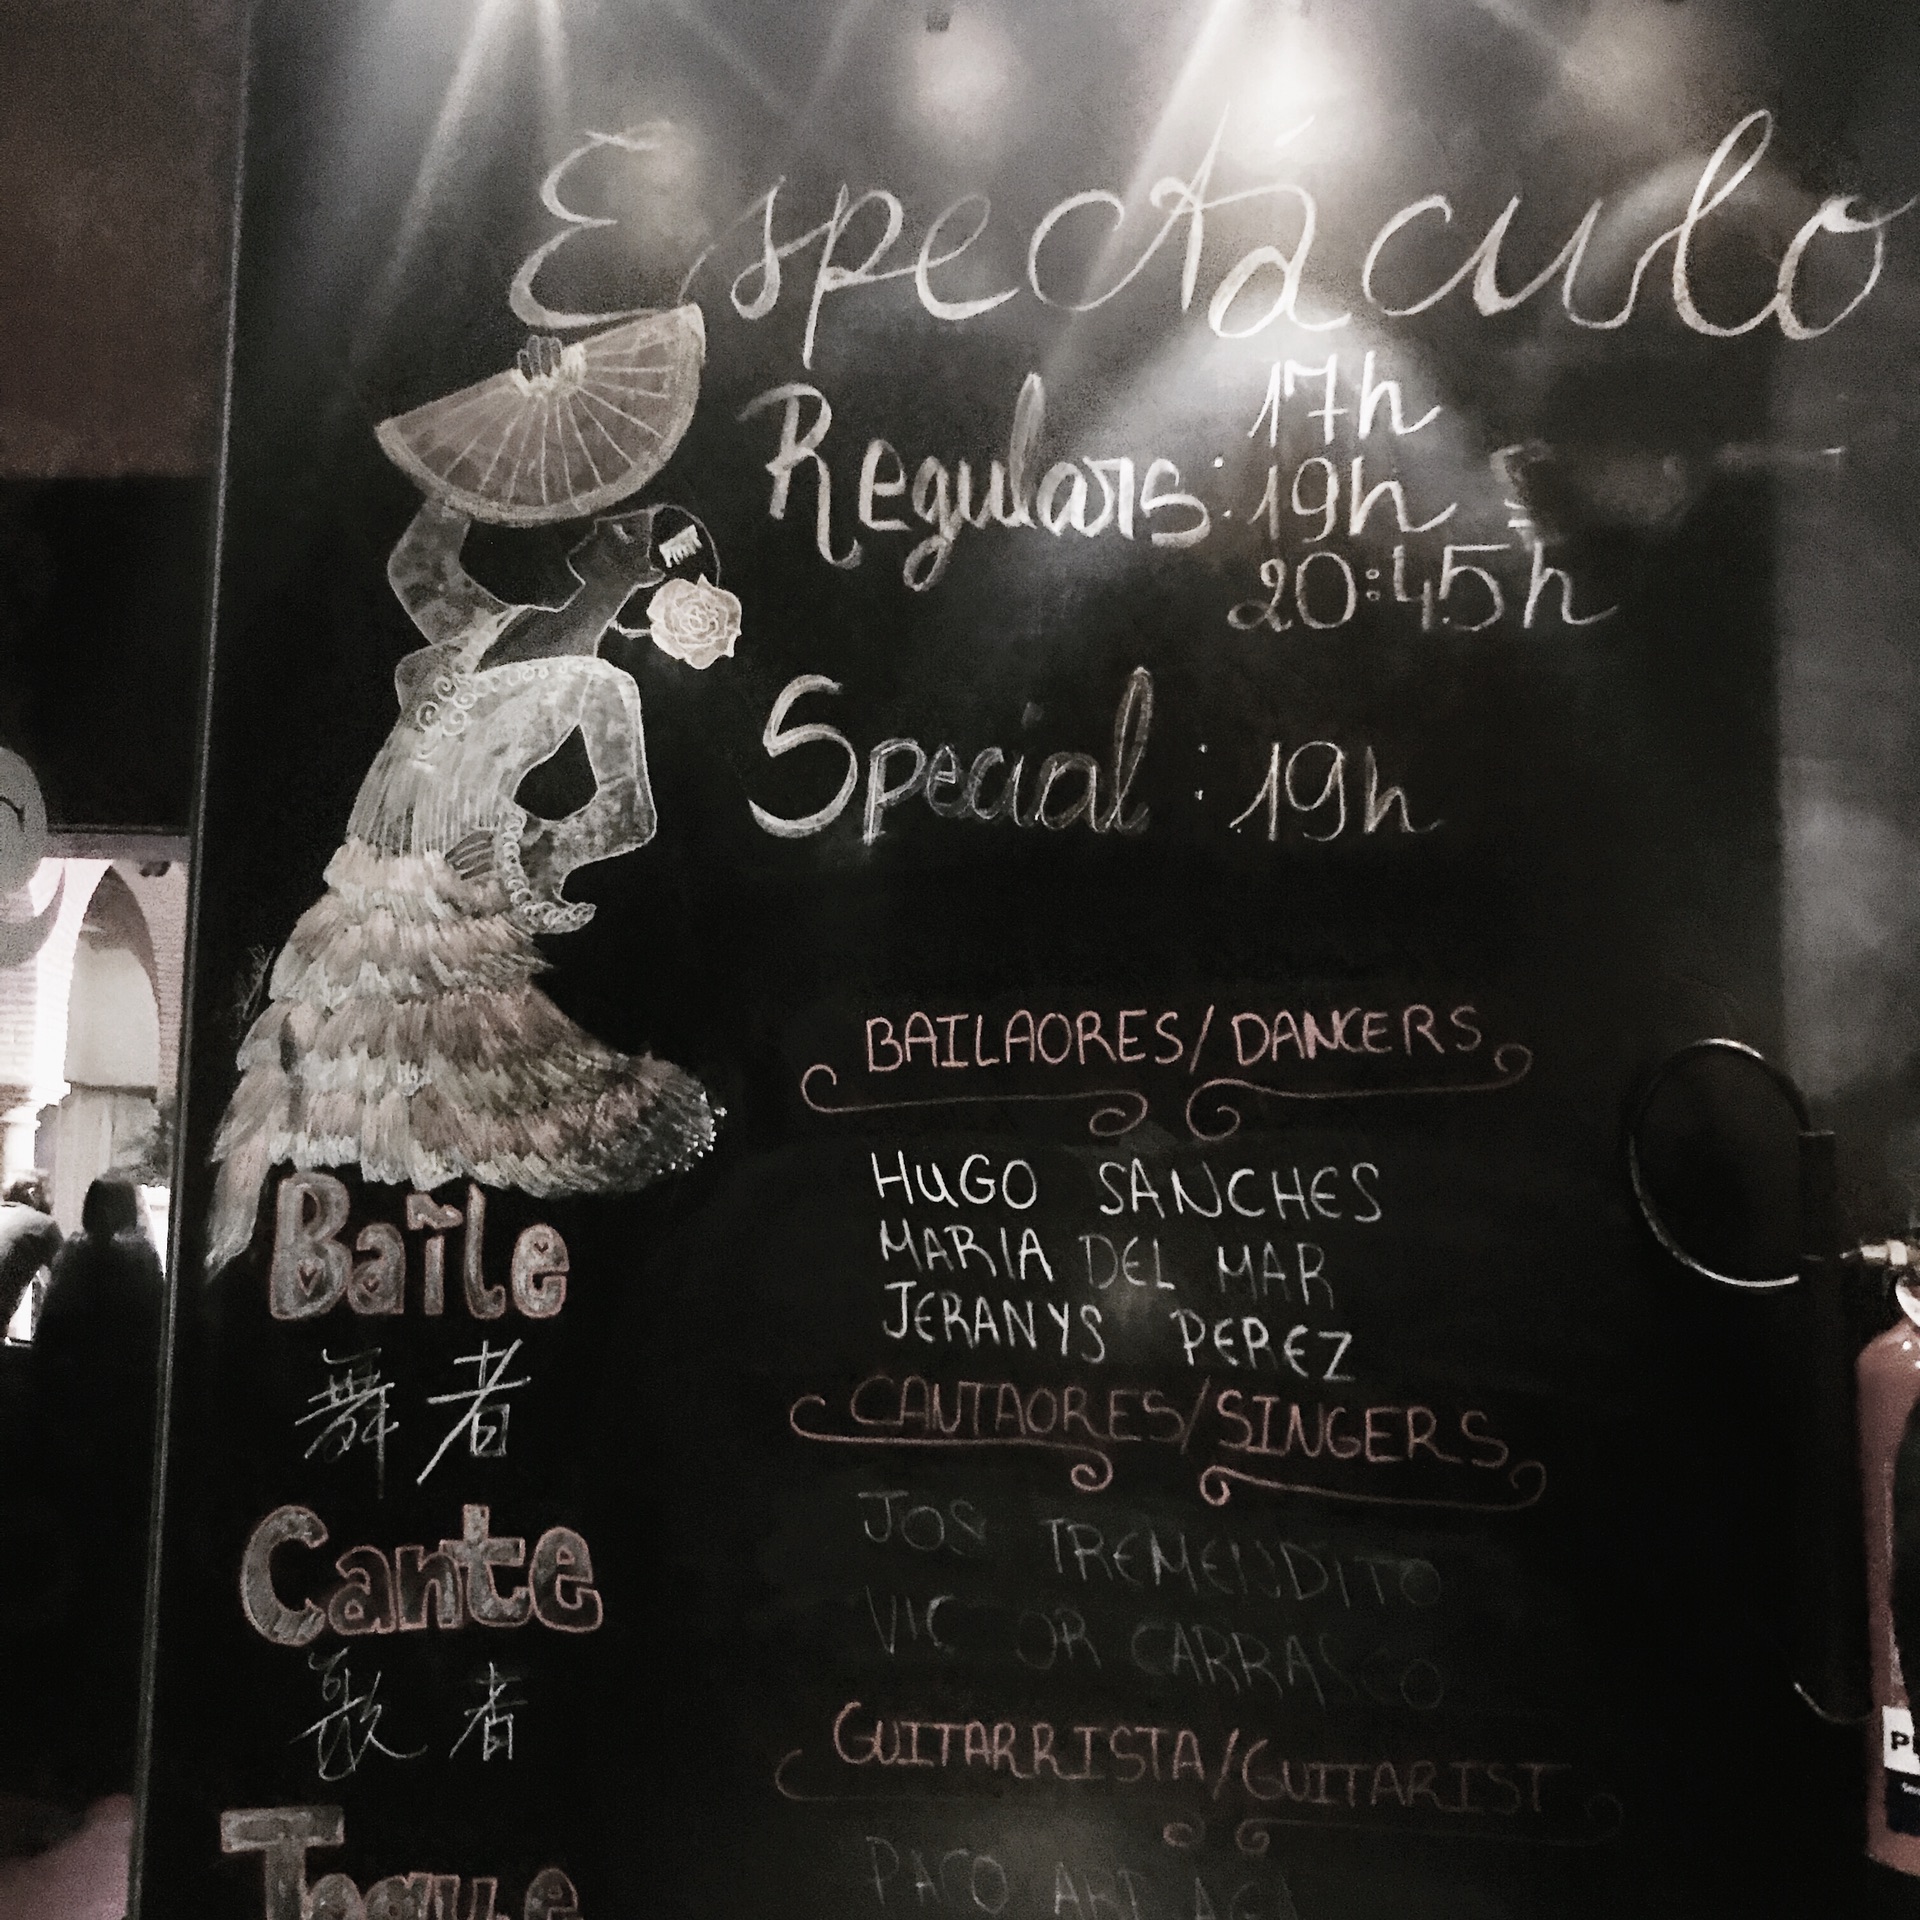 Espectáculo
17h
Regulars: 19h
20:45h
Special: 19h
BAILAORES/DANCERS
HUGO SANCHES
MARIA DEL MAR
JERANYS PEREZ
CANTAORES/SINGERS
JOS TREMENDITO
VIC OR CARRASCO
GUITARRISTA/GUITARIST
PACO
Baile
舞者
Cante
歌者
Toque